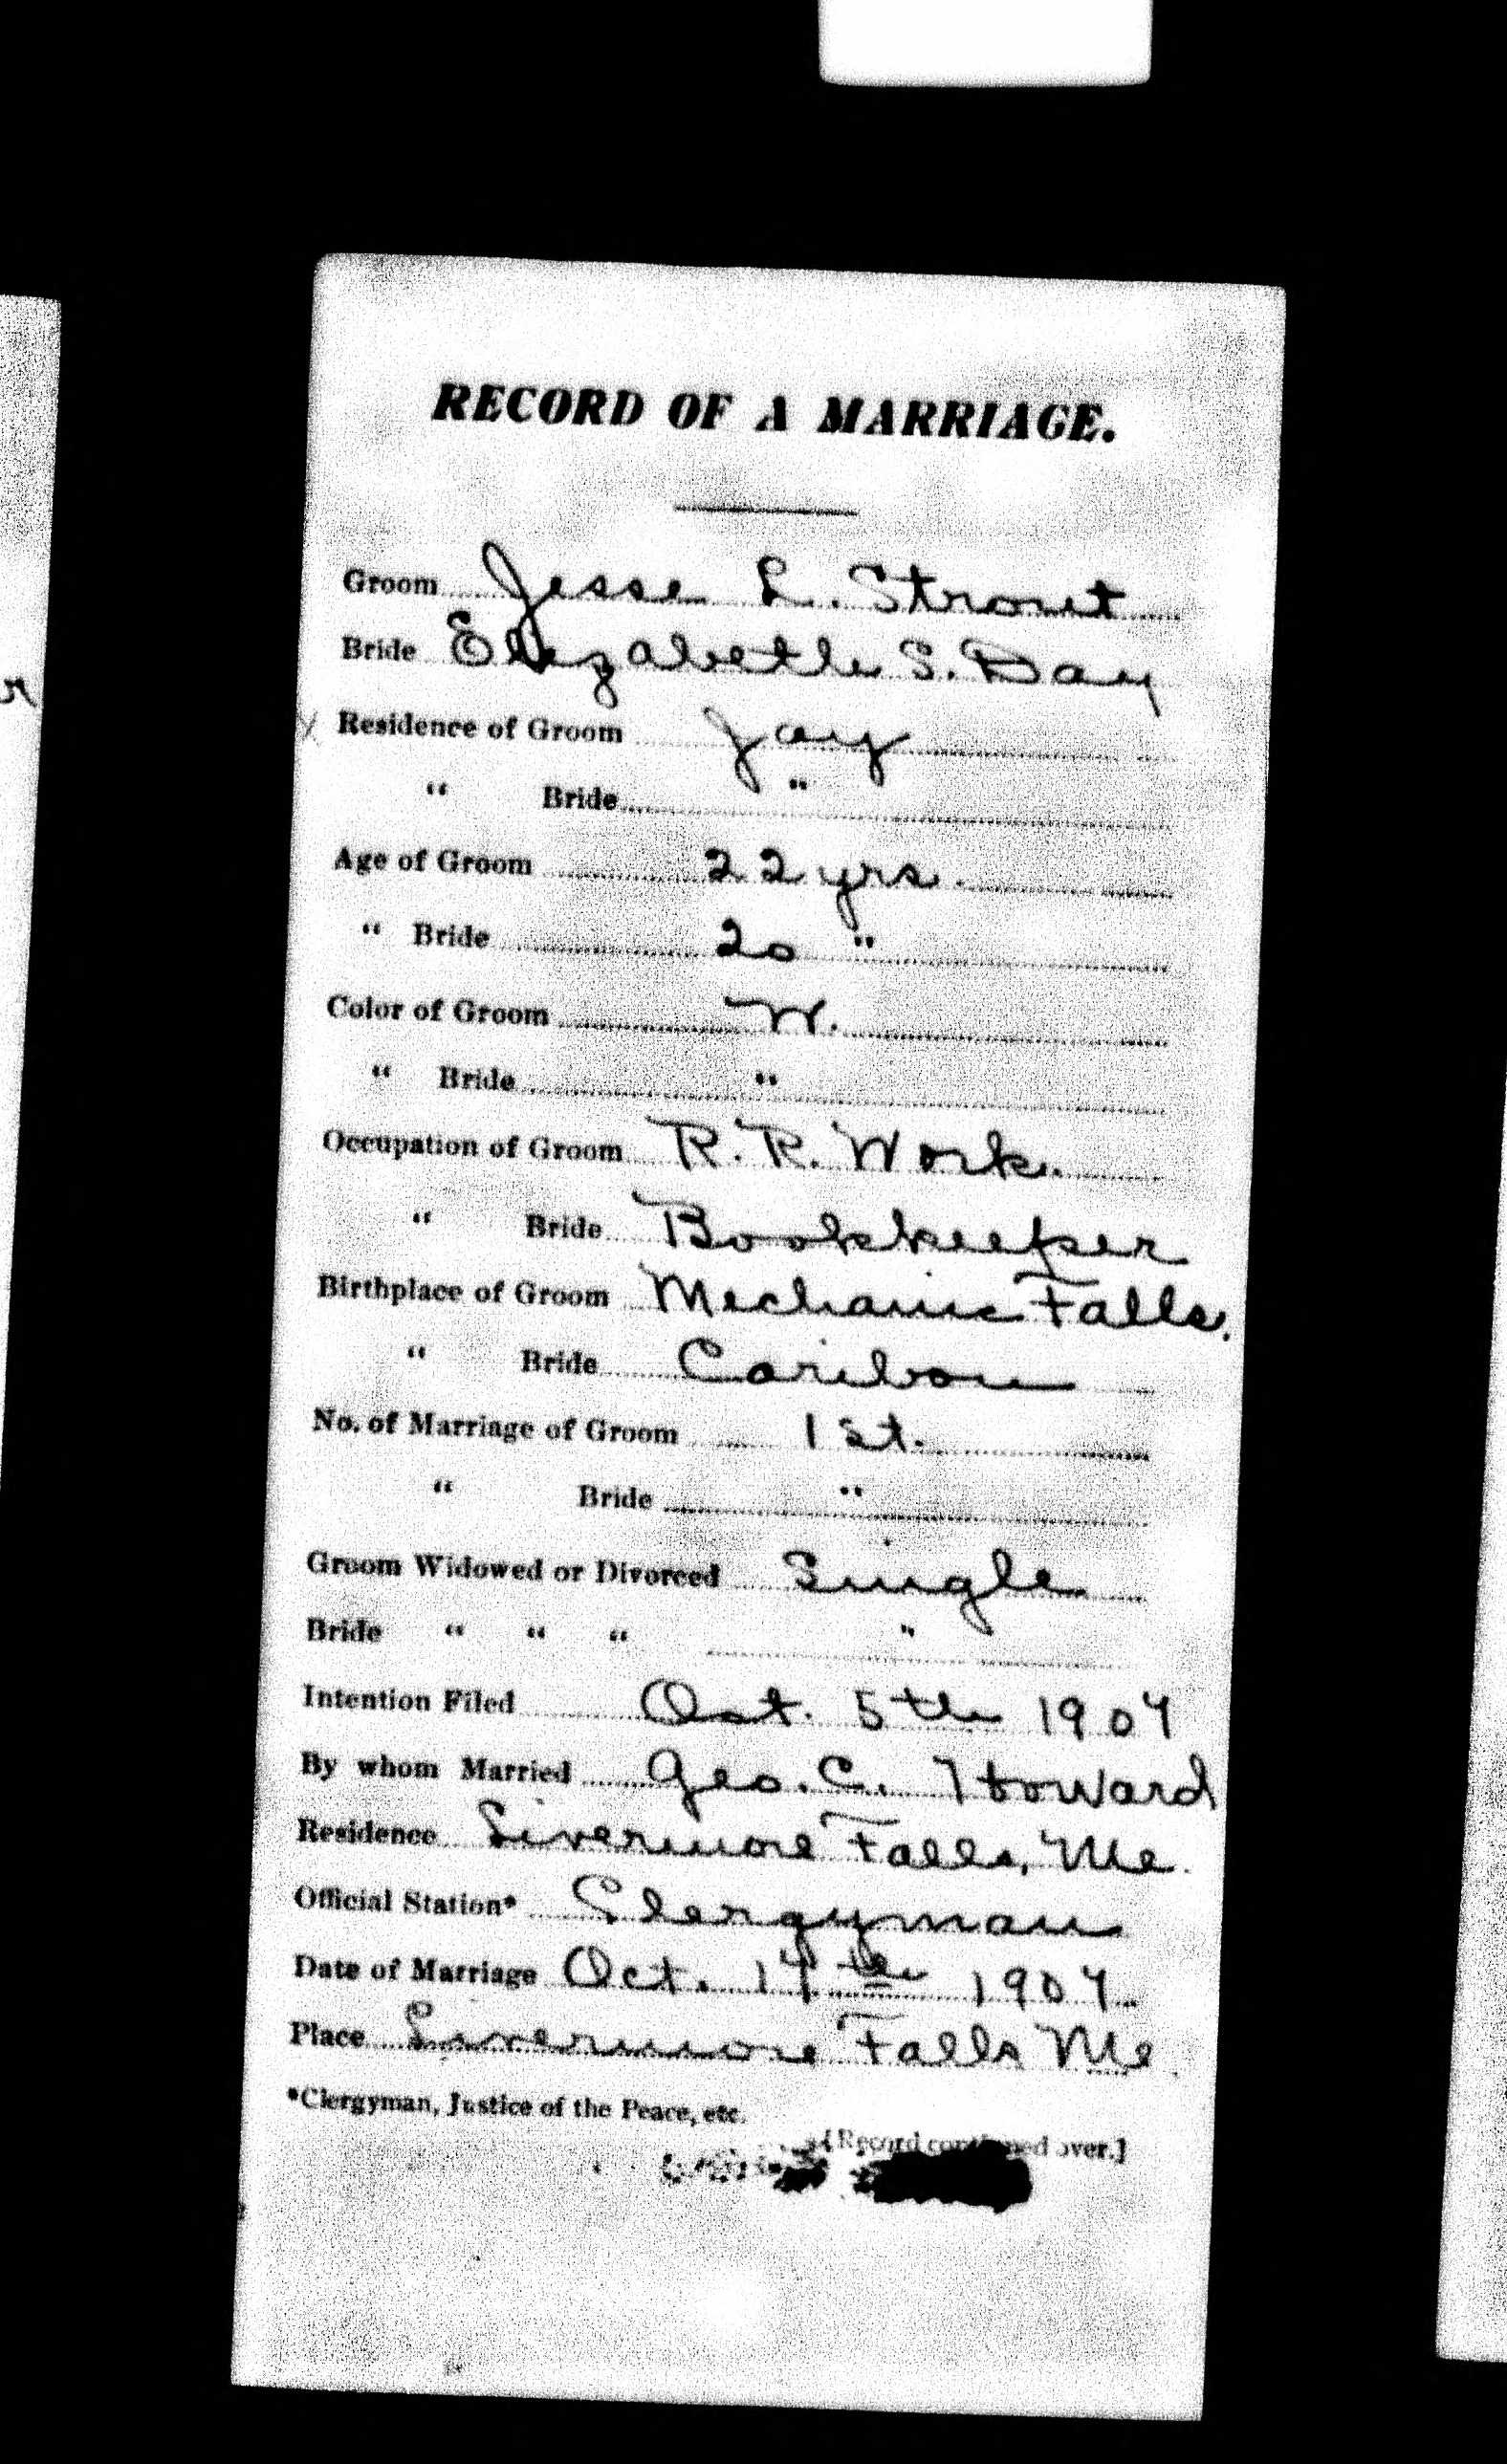 RECORD OF A MARRIAGE.
Groom Jesse L. Strout
Bride Elizabeth S. Day
Residence of Groom Jay
" Bride "
Age of Groom 22 yrs.
" Bride 20 "
Color of Groom W.
" Bride "
Occupation of Groom R.R. Work.
" Bride Bookkeeper
Birthplace of Groom Mechanic Falls.
" Bride Caribou
No. of Marriage of Groom 1st.
" Bride "
Groom Widowed or Divorced Single
Bride " " " "
Intention Filed Oct. 5th 1904
By whom Married Geo. C. Howard
Residence Livermore Falls, Me.
Official Station* Clergyman
Date of Marriage Oct. 14th 1904.
Place Livermore Falls Me
*Clergyman, Justice of the Peace, etc.
[Record continued over.]